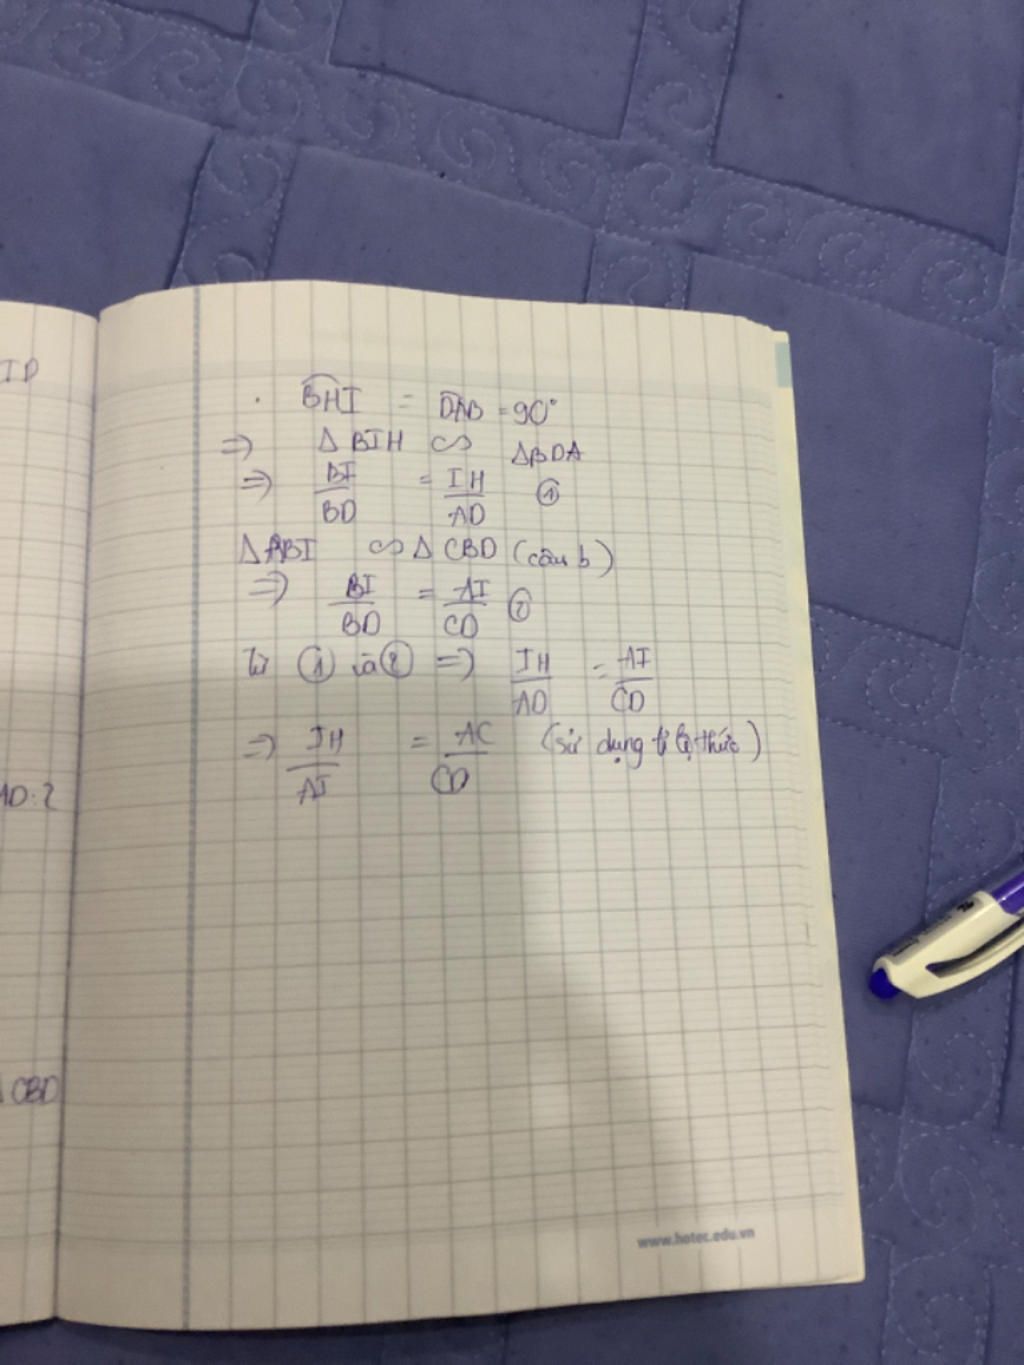 ID
BHI = DAB = 90°
=> Δ BIH ∽ ΔBDA
=> BI/BD = IH/AD ①
Δ ABI ∽ Δ CBD (câu b)
=> BI/BD = AI/CD ②
từ ① và ② => IH/AD = AI/CD
=> IH/AI = AC/CD (sử dụng tỉ lệ thức)
AD:2
Δ CBD
www.hotec.edu.vn